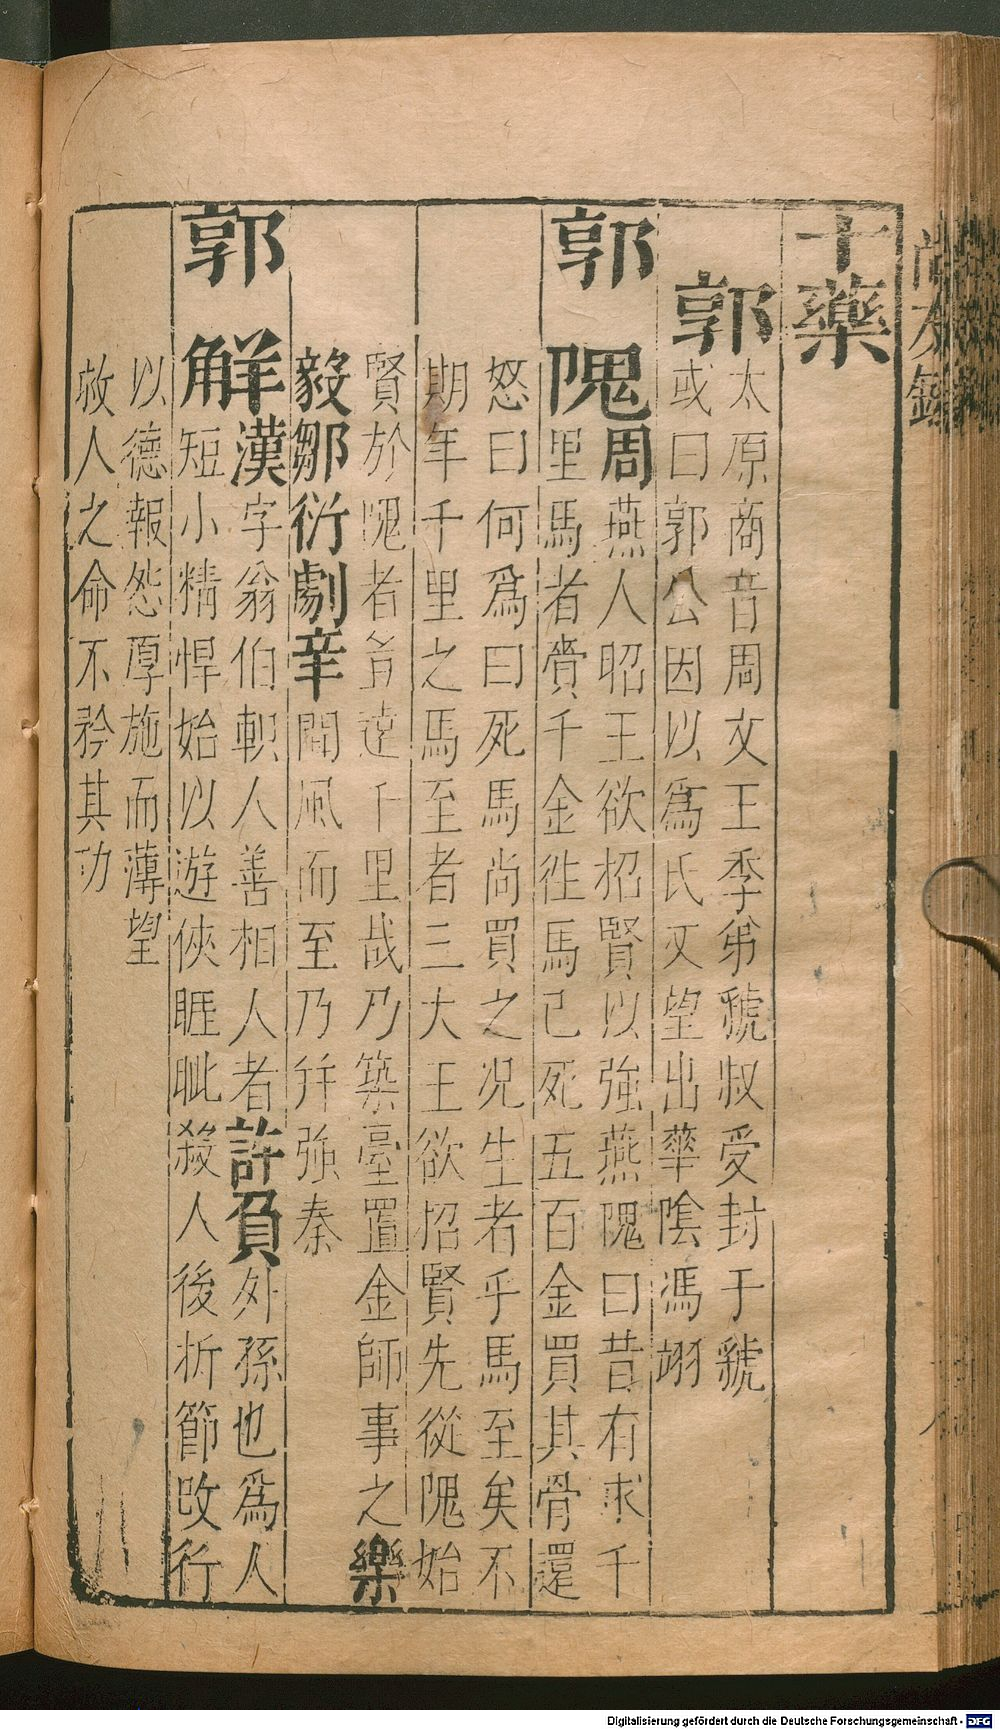 十藥
郭
太原商音周文王季弟虢叔受封于虢
或曰郭公因以爲氏又望出華陰馮翊
郭隗周
燕人昭王欲招賢以強燕隗曰昔有求千
里馬者賫千金徃馬已死五百金買其骨還
怒曰何爲曰死馬尚買之况生者乎馬至矣不
期年千里之馬至者三大王欲招賢先從隗始
賢於隗者豈遠千里哉乃築臺置金師事之樂
毅鄒衍劇辛聞風而至乃幷強秦
郭解漢
字翁伯軹人善相人者許負外孫也爲人
短小精悍始以遊俠睚眦殺人後折節改行
以德報怨厚施而薄望
救人之命不矜其功
Digitalisierung gefördert durch die Deutsche Forschungsgemeinschaft - DFG